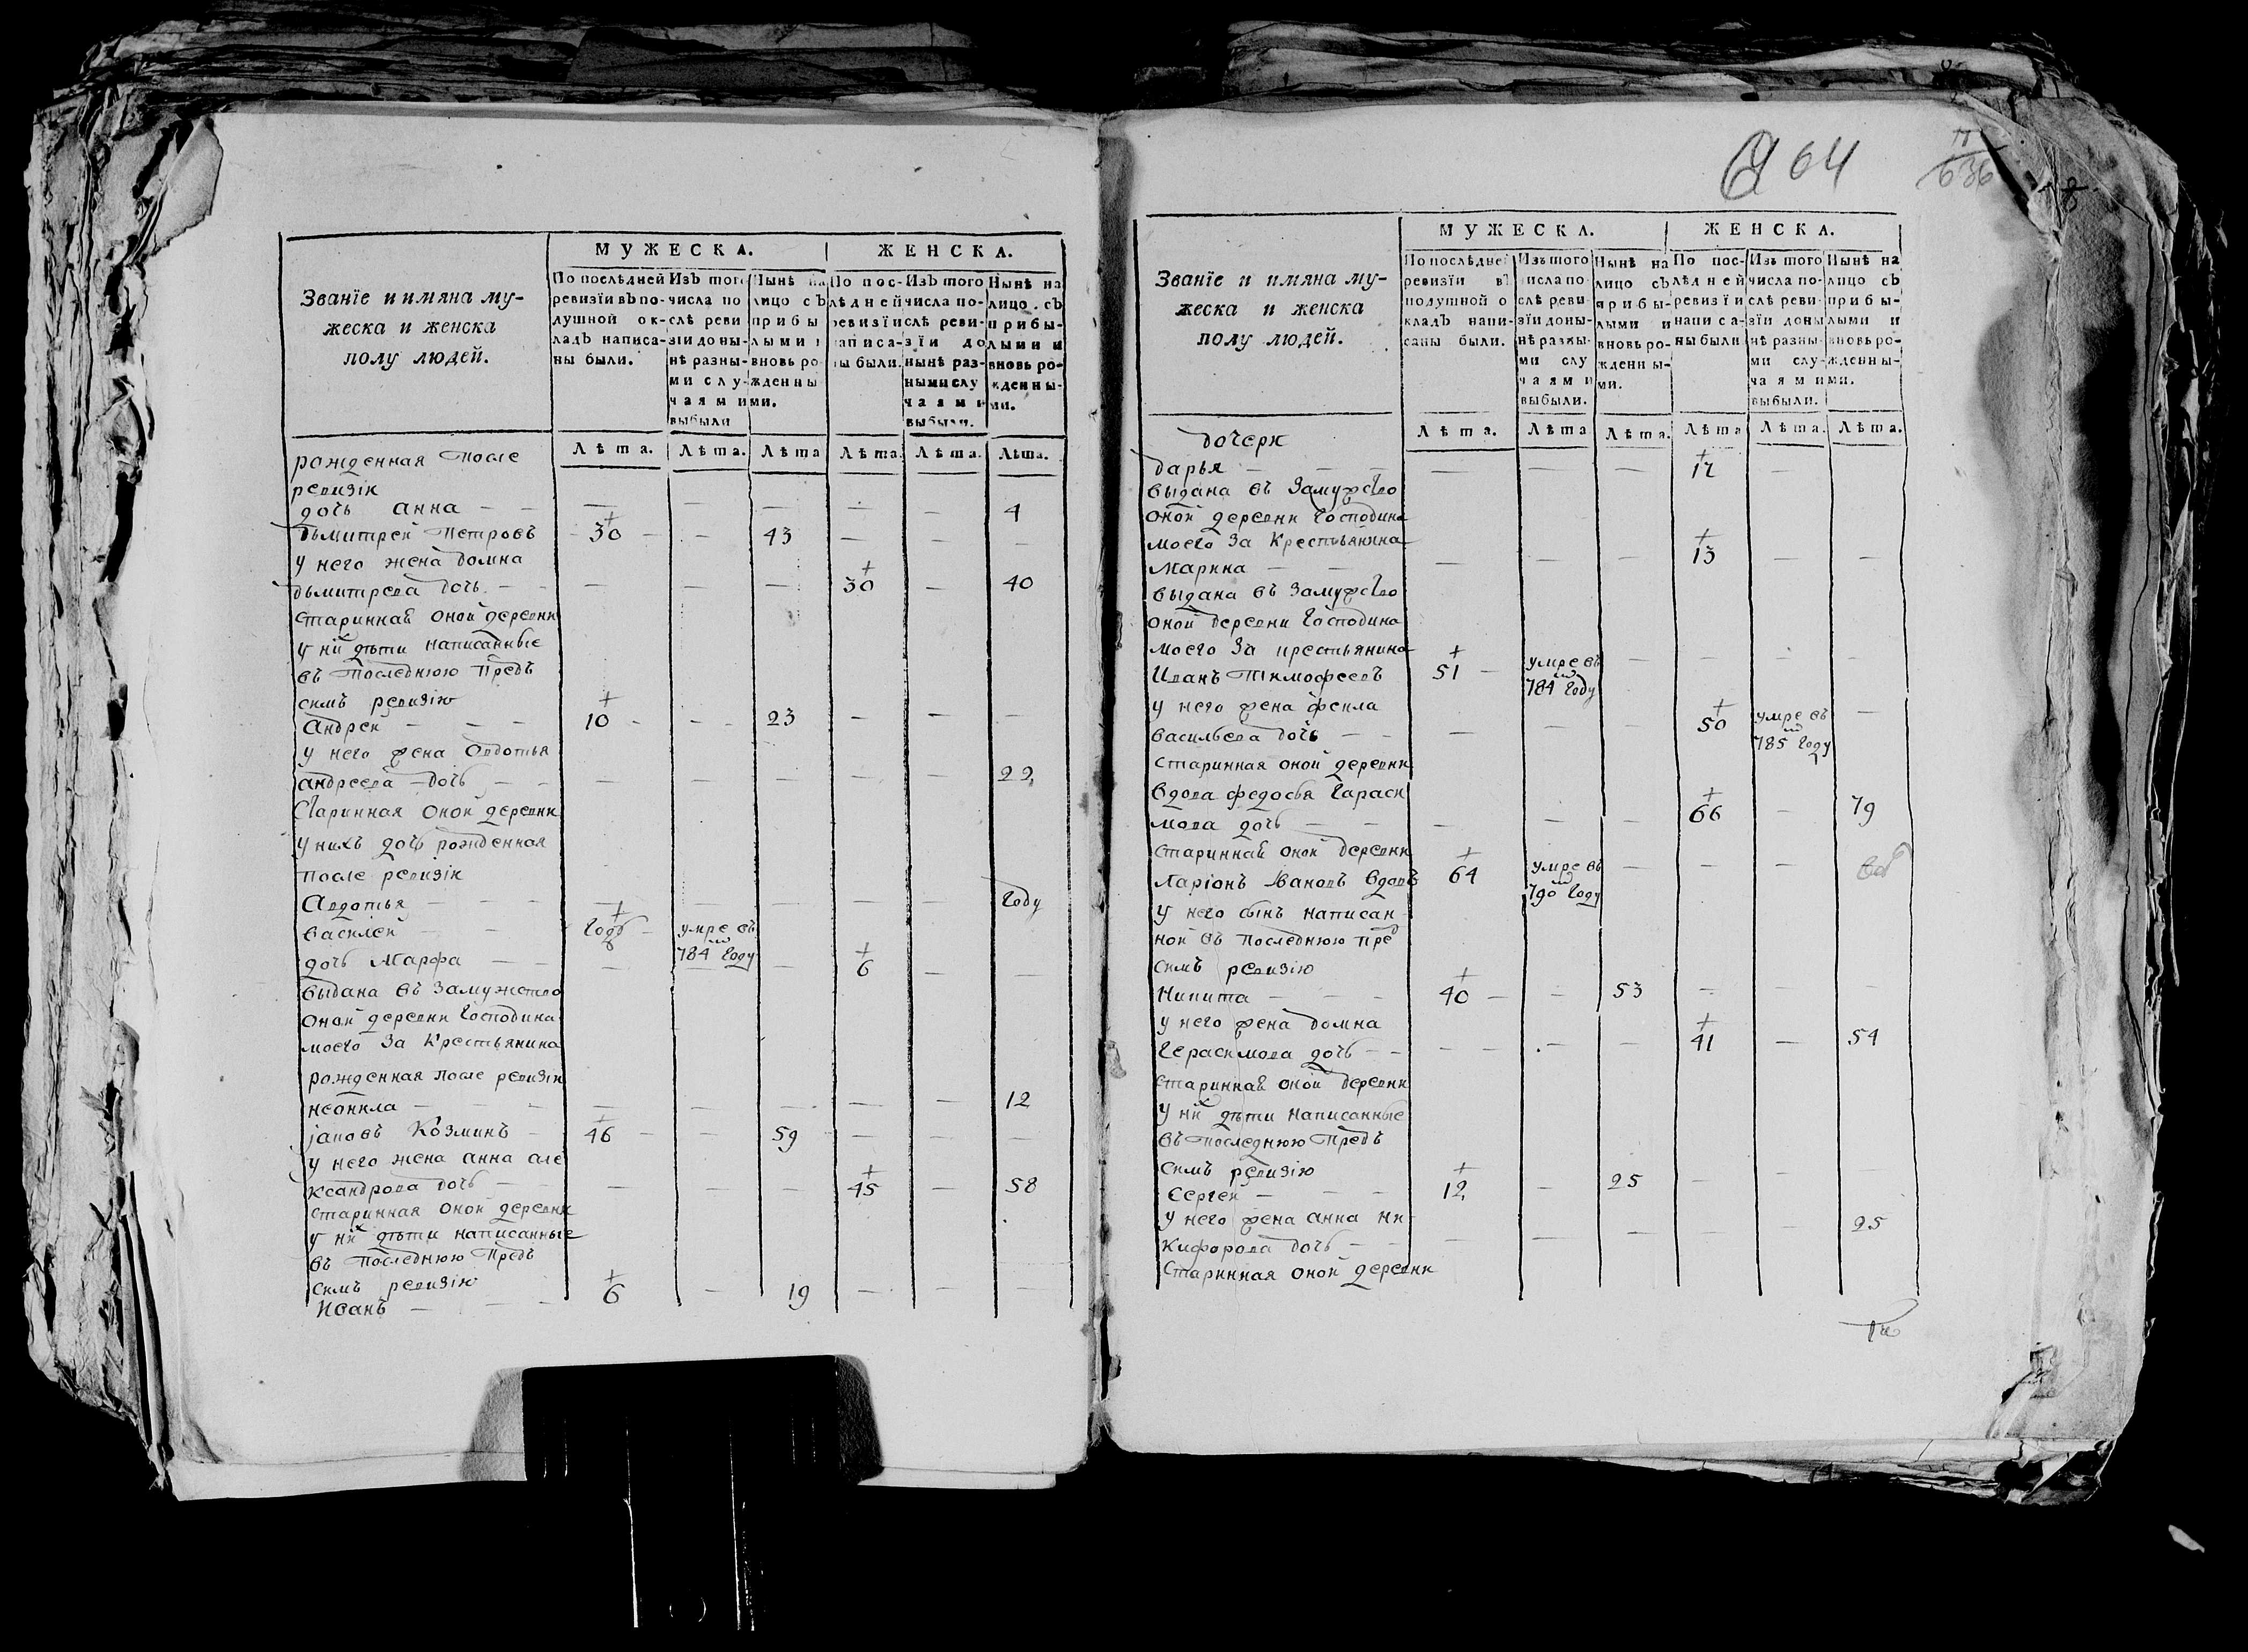 МУЖЕСКА. ЖЕНСКА.
Званїе и имяна му-
жеска и женска
полу людей.
По послѣдней
ревизїи въ по-
душной ок-
ладъ написа-
ны были.
Изъ того
числа по
слѣ реви
зїи доны-
нѣ разны-
ми слу-
чаями
выбыли
Нынѣ на
лицо съ
прибы
лыми и
вновь ро-
жденны
ми.
По пос-
лѣдней
ревизїи
написа-
ны были.
Изъ того
числа по-
слѣ реви-
зїи до
нынѣ раз-
ными слу
чаями
выбыли.
Нынѣ на
лицо съ
прибы-
лыми и
вновь ро-
жденны-
ми.
Лѣта. Лѣта. Лѣта Лѣта. Лѣта. Лѣта.
рожденная после
ревизіи
дочь анна — — — — — — — 4
дьмитрей Петровъ + 30 — — 43 — — —
у него жена домна
дьмитрева дочь — — — — + 30 — 40
старинная оной деревни
у них дѣти написанные
въ последнюю предъ
симъ ревизію
Андрей — — — + 10 - - - 23 — — —
у него жена Авдотья
андреева дочь — — — — — — — 22
Старинная оной деревни
у нихъ дочь рожденная
после ревизіи
Авдотья — — — — — — — — году
василей — — + годъ умре въ
784м году
дочь Марфа — — — — + 6 — —
выдана въ замужство
оной деревни господина
моего за крестьянина
рожденная после ревизіи
неонила — — — — — — — — 12
іаковъ Козминъ — + 46 — — 59 — — —
у него жена анна але
ксандрова дочь — — — — + 45 — 58
старинная оной деревни
у них дѣти написанные
въ последнюю предъ
симъ ревизію
Иванъ — — — + 6 — 19 — — —
64
11/636
МУЖЕСКА. ЖЕНСКА.
Званїе и имяна му-
жеска и женска
полу людей.
По послѣдней
ревизїи въ
подушной о
кладъ напи-
саны были.
Изъ того
числа по
слѣ реви
зїи доны-
нѣ разны-
ми слу
чаями
выбыли.
Нынѣ на
лицо съ
прибы-
лыми и
вновь ро-
жденны-
ми.
По пос-
лѣдней
ревизїи
написа-
ны были
Изъ того
числа по-
слѣ реви-
зїи доны
нѣ разны-
ми слу-
чаями
выбыли.
Нынѣ на
лицо съ
прибы-
лыми и
вновь ро-
жденны-
ми.
Лѣта. Лѣта Лѣта. Лѣта Лѣта. Лѣта.
дочери
дарья — — — — — — + 12 —
выдана въ замужство
оной деревни господина
моего за крестьянина
Марина — — — — — + 13 — —
выдана въ замужство
оной деревни господина
моего за крестьянина
Иванъ Тимофеевъ + 51 — умре въ — — — —
784м году
у него жена фекла
васильева дочь — — — — — + 50 умре въ —
785м году
старинная оной деревни
вдова федосья гараси
мова дочь — — — — — + 66 — 79
старинная оной деревни
Ларіонъ Ивановъ вдовъ + 64 умре въ — — —
790м году
у него сынъ написан
ной въ последнюю пред
симъ ревизію
Никита — — — + 40 — — 53 — — —
у него жена домна
герасимова дочь — — — — — — + 41 — 54
старинная оной деревни
у них дѣти написанные
въ последнюю предъ
симъ ревизію
Сергей — — — + 12 — 25 — — —
у него жена анна ни-
кифорова дочь — — — — — — — 25
старинная оной деревни